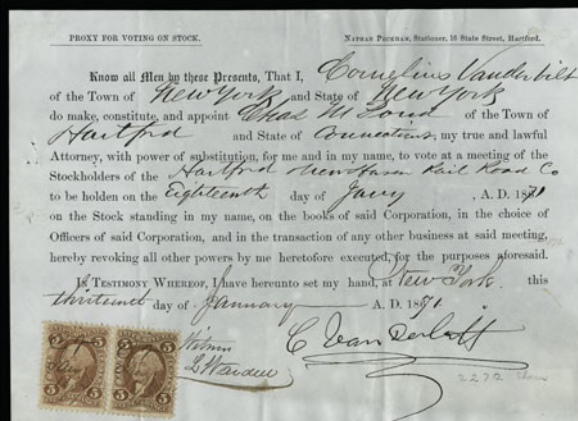 PROXY FOR VOTING ON STOCK. NATHAN PECKHAM, Stationer, 16 State Street, Hartford.
Know all Men by these Presents, That I, Cornelius Vanderbilt
of the Town of New York and State of New York
do make, constitute, and appoint Chas M of the Town
of Hartford and State of Connecticut, my true and lawful
Attorney, with power of substitution, for me and in my name, to vote at a meeting of the
Stockholders of the Hartford & New Haven Rail Road Co
to be holden on the Eighteenth day of Jany , A. D. 1871
on the Stock standing in my name, on the books of said Corporation, in the choice of
Officers of said Corporation, and in the transaction of any other business at said meeting,
hereby revoking all other powers by me heretofore executed, for the purposes aforesaid.
IN TESTIMONY WHEREOF, I have hereunto set my hand, at New York. this
thirteenth day of January A. D. 1871.
C Van Derbilt
Witness
L Wardell
5 5 5 5
2272